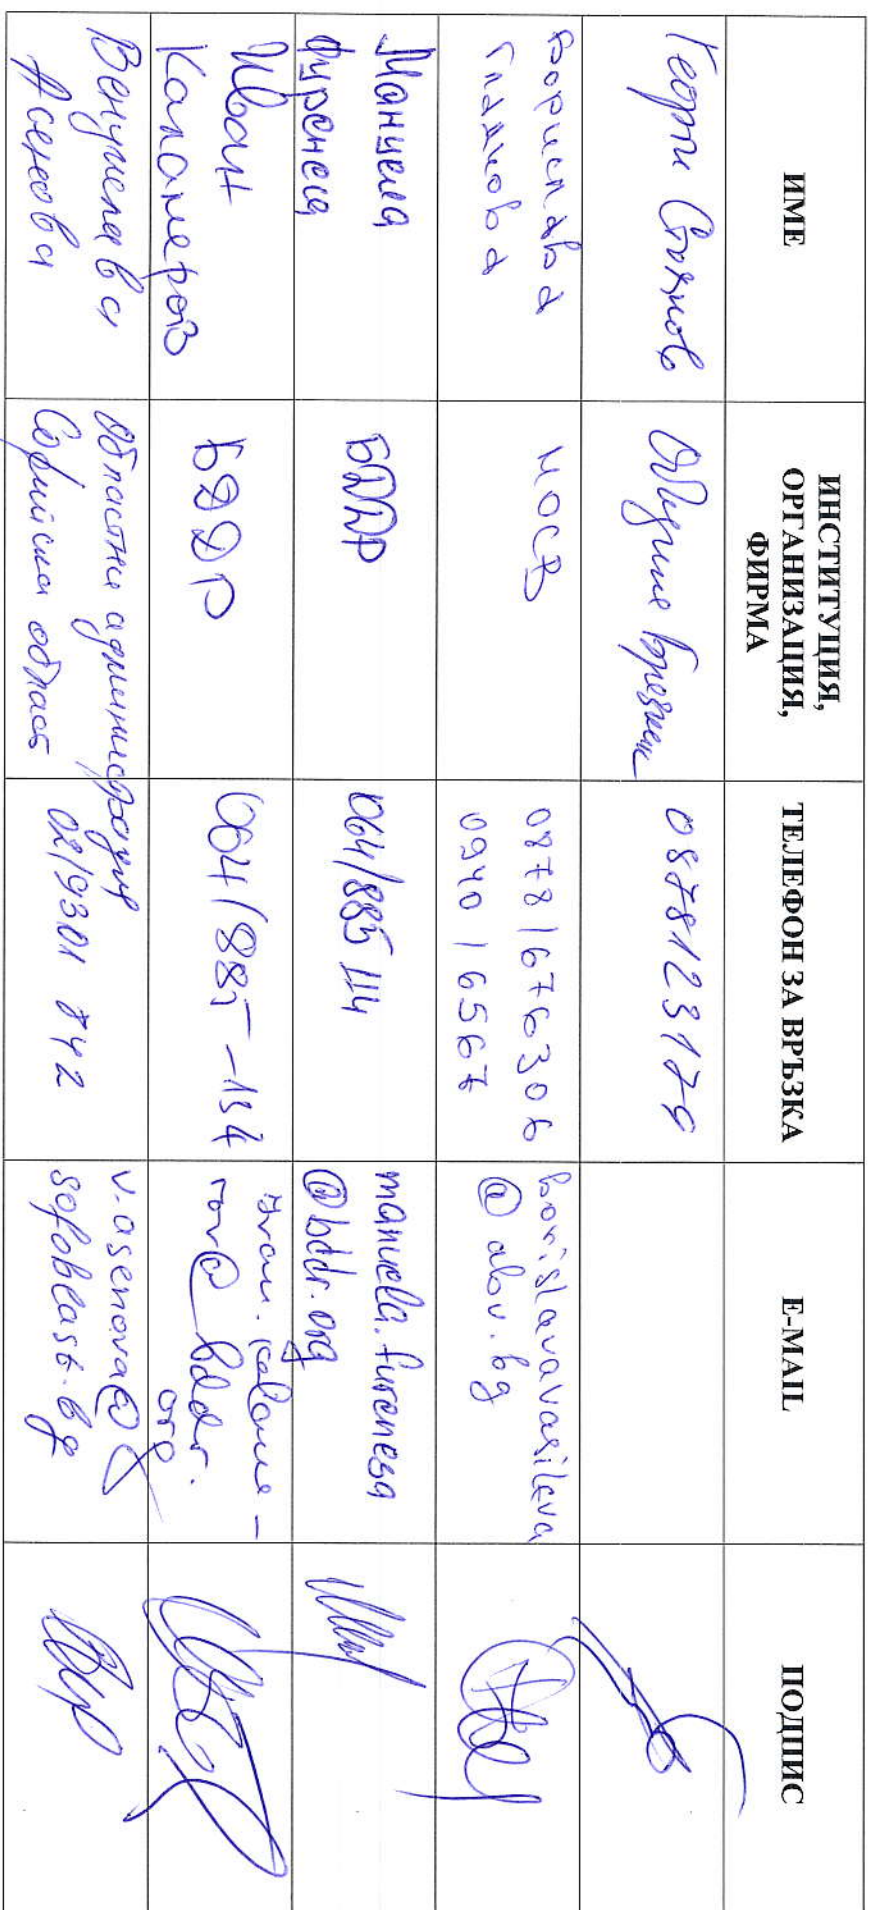 ИМЕ
ИНСТИТУЦИЯ,
ОРГАНИЗАЦИЯ,
ФИРМА
ТЕЛЕФОН ЗА ВРЪЗКА
E-MAIL
ПОДПИС
Георги Стоянов
Община Брезник
Борислава
Гладкова
МОСВ
0878/676306
0940/6567
borislavavasileva
@abv.bg
Мануела
Фуренеса
БДДР
064/885 114
manuela.furenesa
@bddr.org
Иван
Каламеров
БДДР
064/885-134
ivan.kalame-
rov@bddr.
org
Венцислава
Асенова
Областна администрация
Софийска област
02/9301 842
v.asenova@
sofoblast.bg